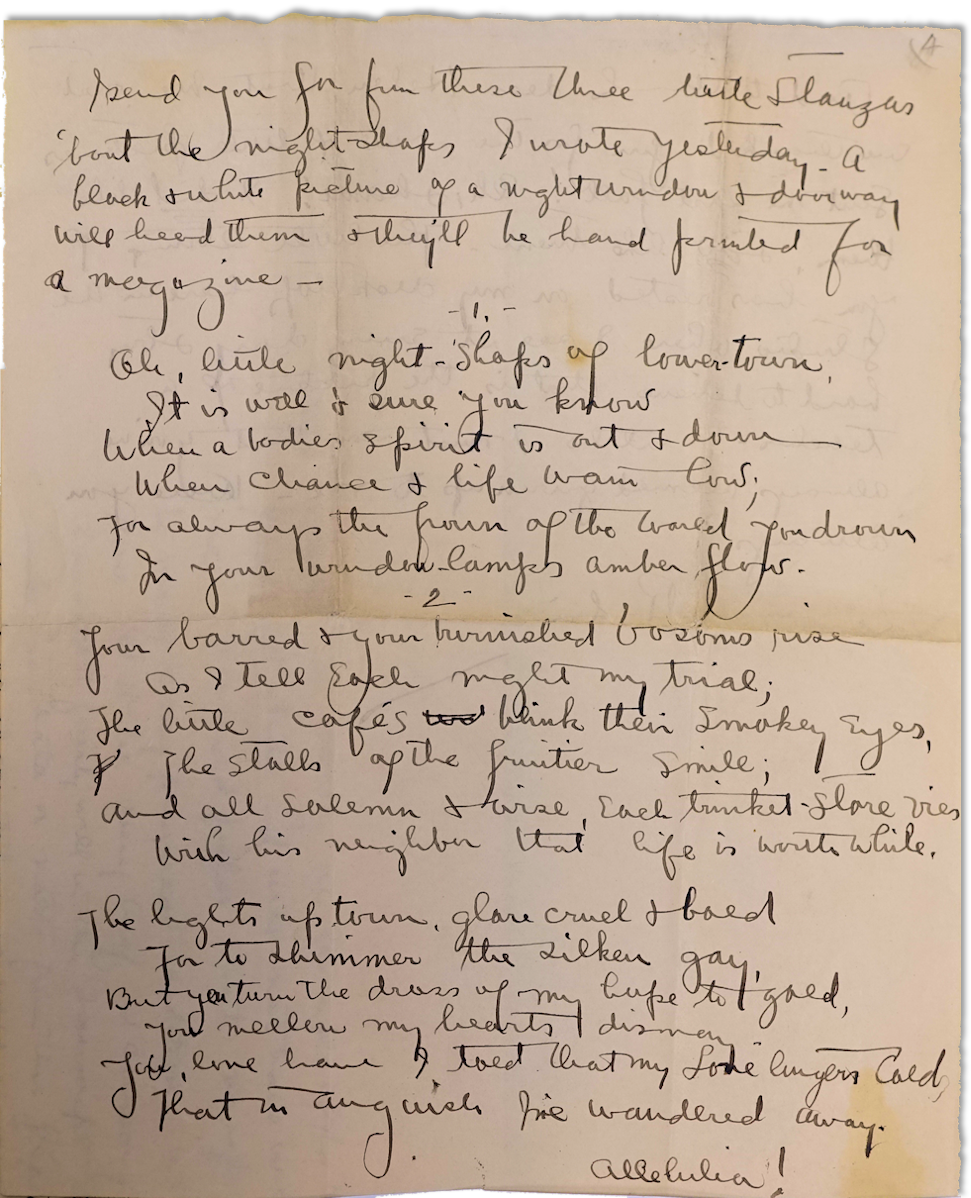 4
I send you for fun these three little Stanzas
'bout the night-shops I wrote yesterday - A
black & white picture of a night window & doorway
will head them & they'll be hand printed for
a magazine —
-1.-
Oh, little night-shops of lower-town,
It is well & sure you know
When a bodies spirit is out & down
When chance & life wain low;
For always the frown of the world you drown
In your window-lamps amber flow.
-2-
Your barred & your burnished bosoms rise
As I tell Each night my trial;
The little cafés blink their Smokey Eyes,
The Stalls of the fruitier Smile;
And all solemn & wise, Each trinket-Store vies
With his neighbor that life is worth while.
The lights uptown, glare cruel & bold
For to shimmer the silken gay,
But you turn the dross of my hope to gold,
You mellow my hearts dismay
You, love have I told that my Love lingers Cold,
That in anguish I've wandered away.
Allelulia!